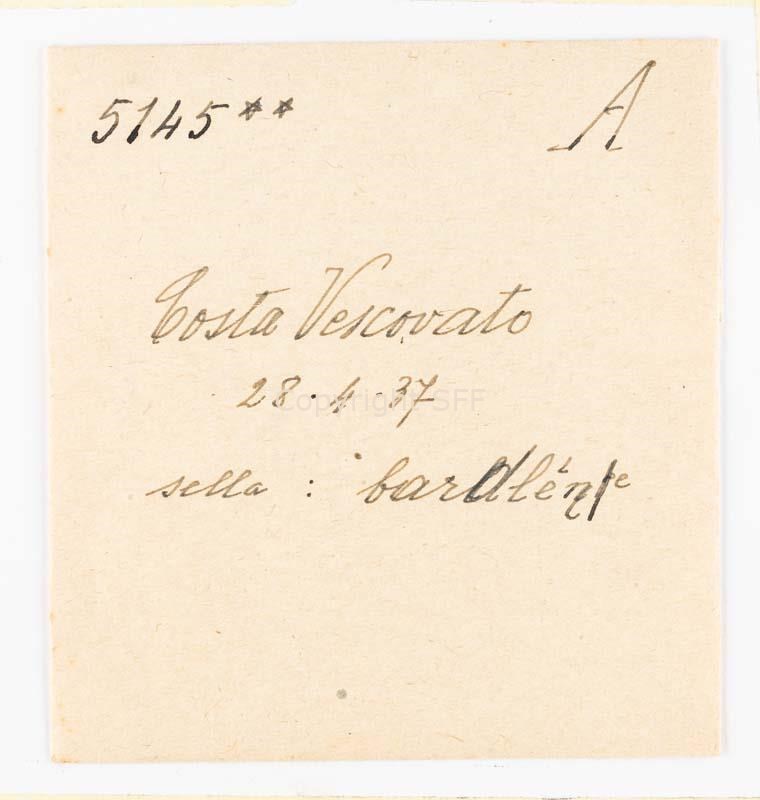 5145** A
Costa Vescovato
28.4.37
Copyright SFF
sella :